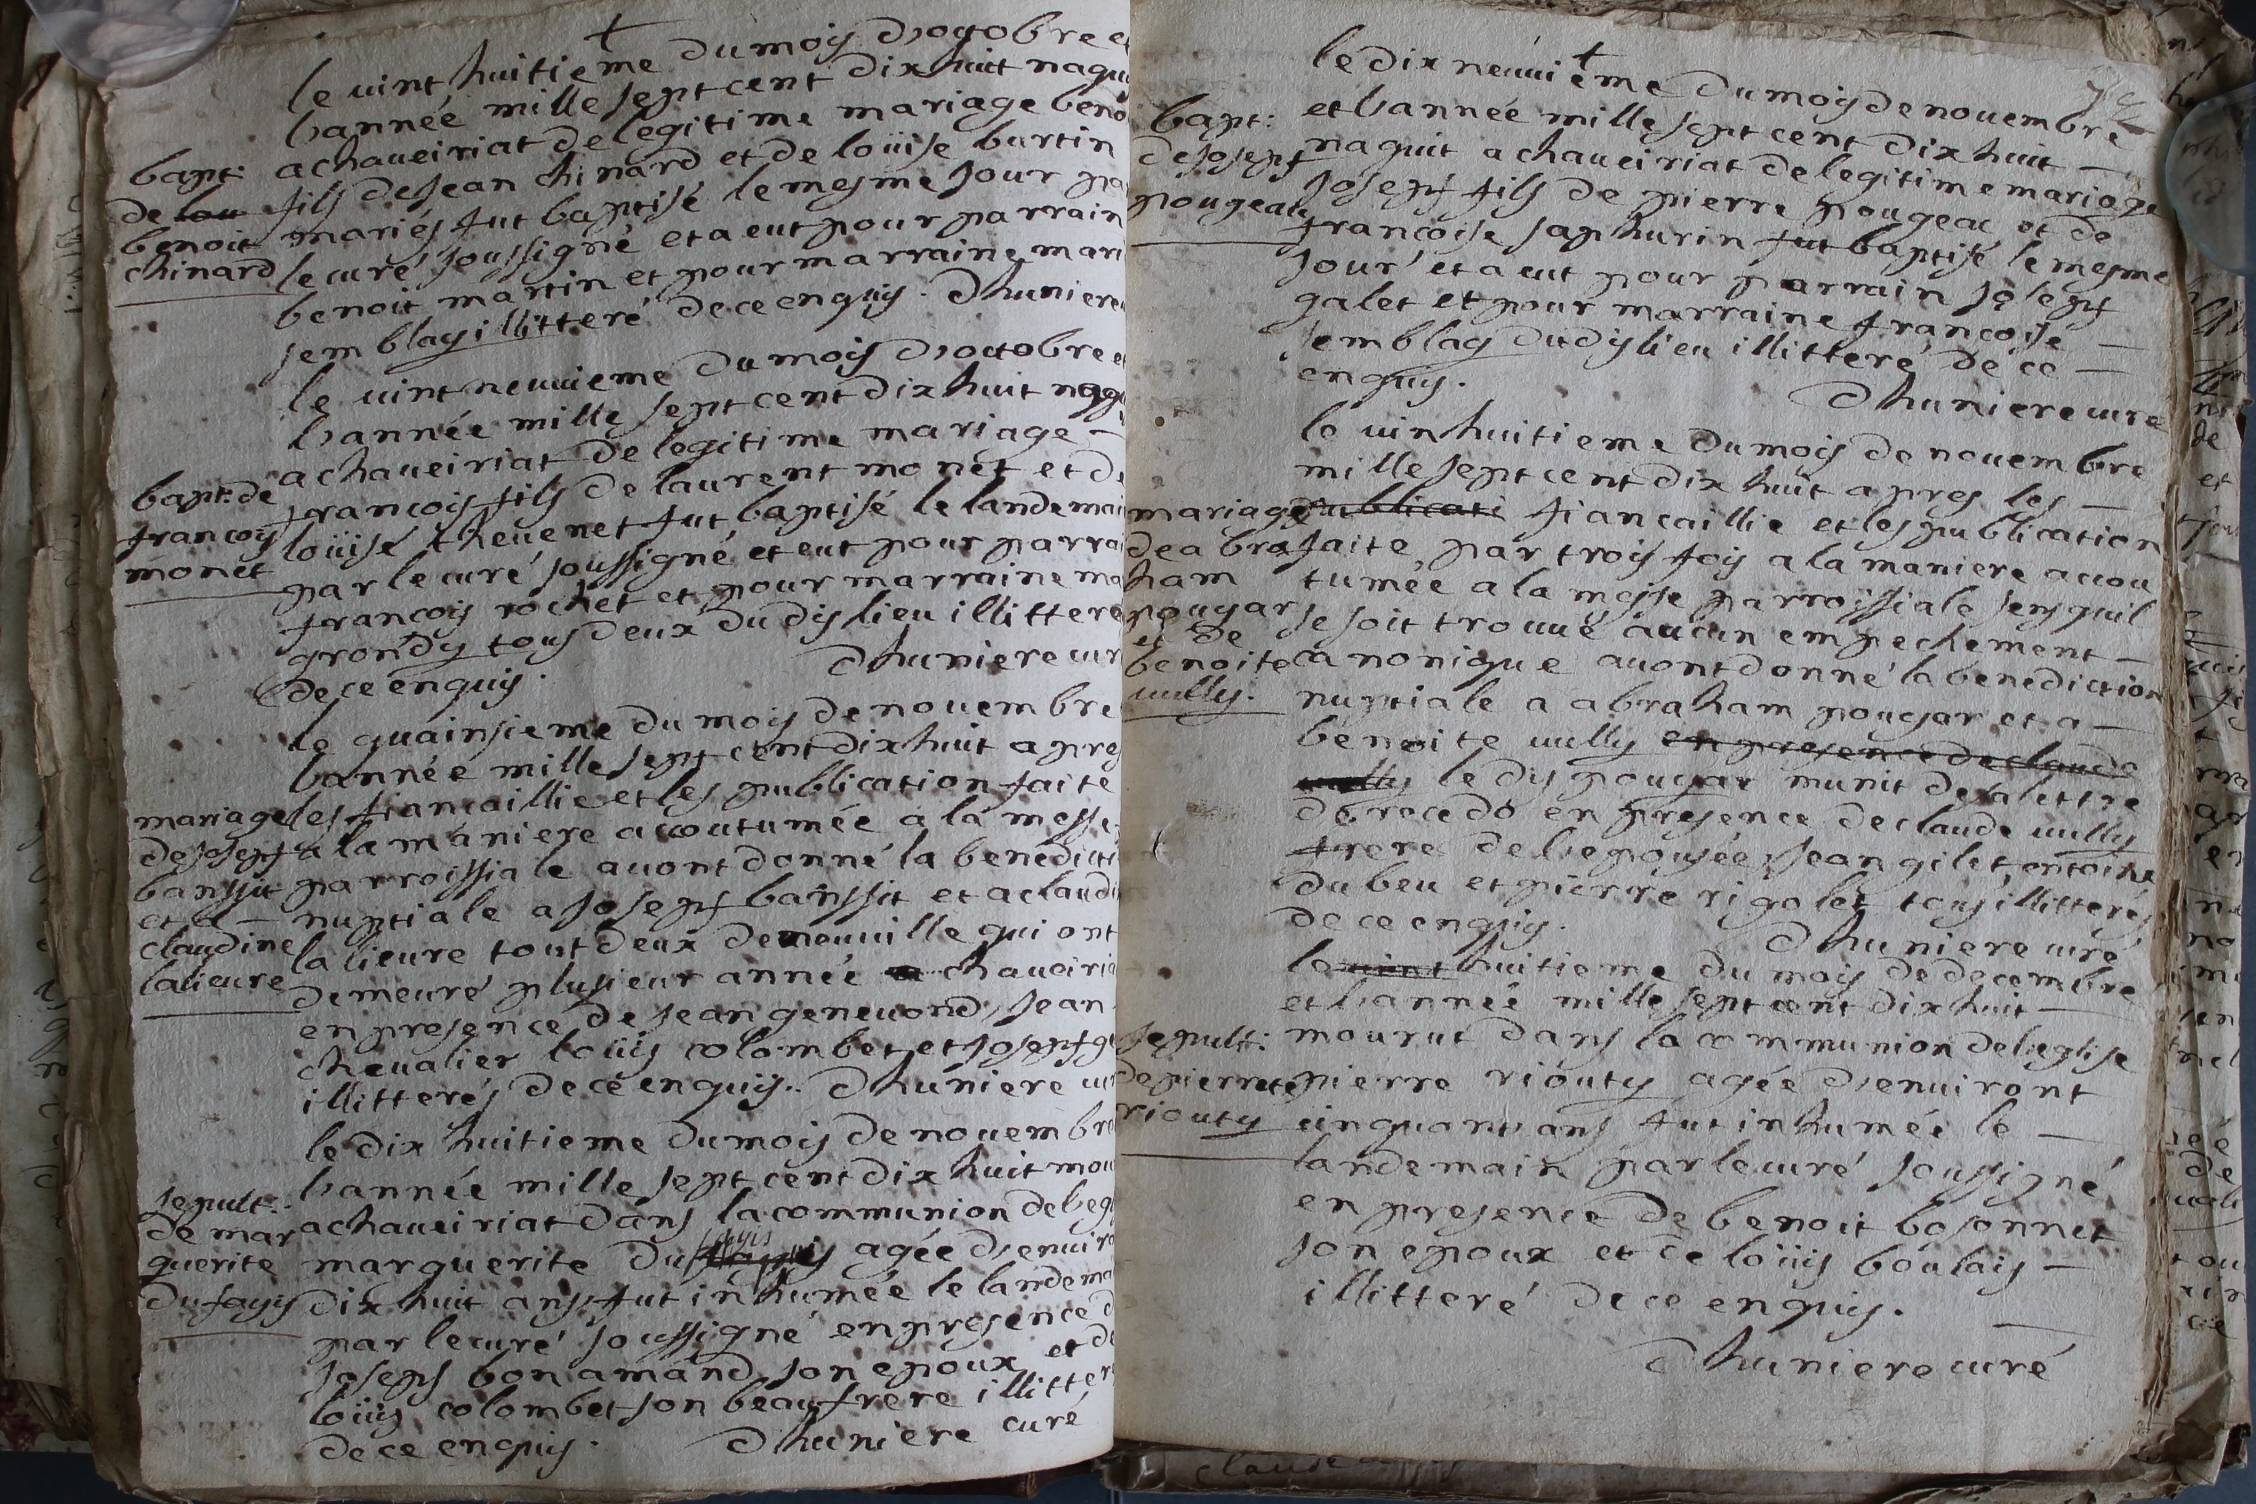 le vint huitieme du mois d'octobre et
l'année mille sept cent dix huit naqui
a chaveiriat de legitime mariage beno
bapt:
de
benoit
chinard
fils de Jean chinard et de loüise burtin
mariés fut baptisé le mesme jour pa
le curé soussigné et a eut pour parrain
benoit martin et pour marraine mari
semblay illitteré de ce enquis. Dhuniere
le vint neuvieme du mois d'octobre et
l'année mille sept cent dix huit naqu
a chaveiriat de legitime mariage
bapt: de
francois
monet
francois fils de laurent monet et de
loüise thevenet fut baptisé le landemai
par le curé soussigné et eut pour parrai
francois rochet et pour marraine ma
grondy tous deux du dis lieu illitteré
de ce enquis. Dhuniere cur
le quainsieme du mois de novembre
l'année mille sept cent dix huit apres
mariage
de josepf
banssit
et a
claudine
lalievre
les fiancaillie et les publication faite
a la maniere accoutumée a la messe
parroissiale avont donné la benedicti
nuptiale a Josepf banssit et a claudi
la lievre tout deux de neuville qui ont
demeuré plusieur année chaveiria
en presence de Jean genevond, Jean
chevalier loüis colombet et Josepf gu
illitterés de ce enquis. Dhuniere cur
le dix huitieme du mois de novembre
l'année mille sept cent dix huit mou
sepult:
de mar
guerite
dufayis
a chaveiriat dans la communion de l'egl
marguerite du fayis agée d'enviro
dix huit ans fut inhumée le landema
par le curé soussigné en presence d
Joseph bonamand son epoux et de
loüis colombet son beaufrere illitter
de ce enquis. Dhuniere curé
le dix neuvième du mois de novembre
bapt:
de josepf
pougeau
et l'année mille sept cent dix huit
naquit a chaveiriat de legitime mariage
Josepf fils de pierre pougeau et de
francoise saphurin fut baptisé le mesme
jour et a eut pour parrain josepf
galet et pour marraine francoise
semblay du dis lieu illitteré de ce
enquis.
Dhuniere curé
le vin huitieme du mois de novembre
mille sept cent dix huit apres les
mariage
de abra
ham
pougar
et de
benoite
vully.
publicati fiancaillie et les publication
faite par trois fois a la maniere accou
tumée a la messe parroissiale sens quil
se soit trouvé aucun empechement
canonique avont donné la benediction
nuptiale a abraham pougar et a
benoite vully en presence de claude
vully le dis pougar munit de sa lettre
de recedo en presence de claude vully
frere de l'epousée, Jean gilet, entoine
dubeu et pierre rigolet tous illitterés
de ce enquis.
Dhuniere curé
le vint huitieme du mois de decembre
et l'année mille sept cent dix huit
sepult:
de pierrete
riouty
mourut dans la communion de l'eglise
pierre riouty agée d'environt
cinquant ans fut inhumée le
landemain par le curé soussigné
en presence de benoit bosonnet
son epoux et de loüis boulais
illitteré de ce enquis.
Dhuniere curé